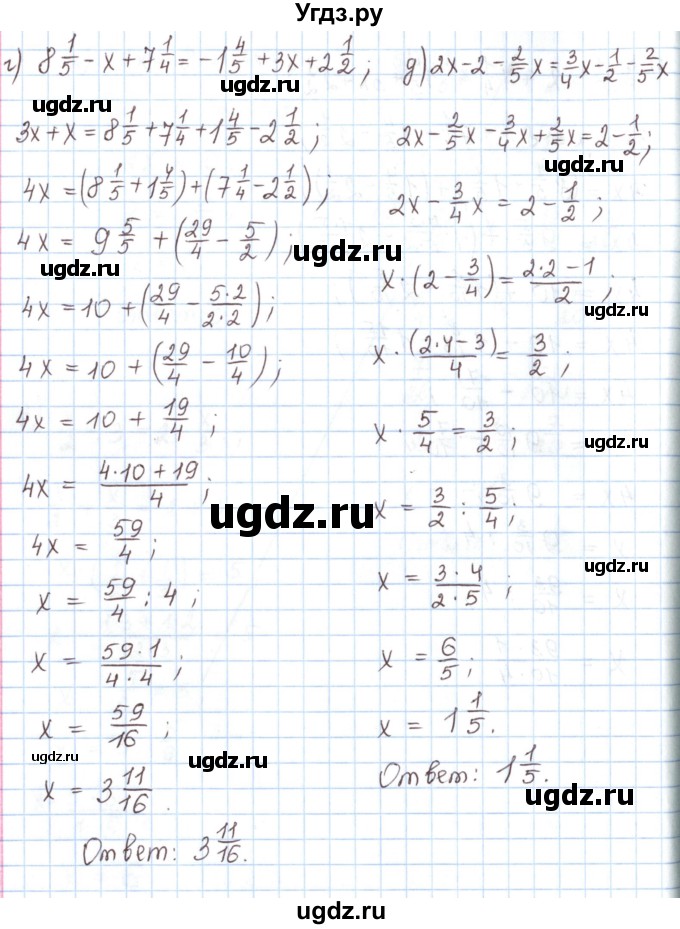 Угдз.ру
г) 8 1/5 - x + 7 1/4 = -1 4/5 + 3x + 2 1/2 ;
3x + x = 8 1/5 + 7 1/4 + 1 4/5 - 2 1/2 ;
ugdz.ru
4x = (8 1/5 + 1 4/5) + (7 1/4 - 2 1/2) ;
4x = 9 5/5 + (29/4 - 5/2) ;
ugdz.ru
ugdz.ru
4x = 10 + (29/4 - 5·2/2·2) ;
4x = 10 + (29/4 - 10/4) ;
4x = 10 + 19/4 ;
4x = 4·10 + 19/4 ;
ugdz.ru
4x = 59/4 ;
x = 59/4 : 4 ;
x = 59·1/4·4 ;
x = 59/16 ;
ugdz.ru
x = 3 11/16 .
Ответ: 3 11/16.
д) 2x - 2 - 2/5 x = 3/4 x - 1/2 - 2/5 x
ugdz.ru
2x - 2/5 x - 3/4 x + 2/5 x = 2 - 1/2 ;
2x - 3/4 x = 2 - 1/2 ;
x · (2 - 3/4) = 2·2 - 1/2 ;
ugdz.ru
x · (2·4 - 3)/4 = 3/2 ;
x · 5/4 = 3/2 ;
ugdz.ru
x = 3/2 : 5/4 ;
ugdz.ru
x = 3·4/2·5 ;
x = 6/5 ;
x = 1 1/5 .
ugdz.ru
Ответ: 1 1/5.
ugdz.ru
ugdz.ru